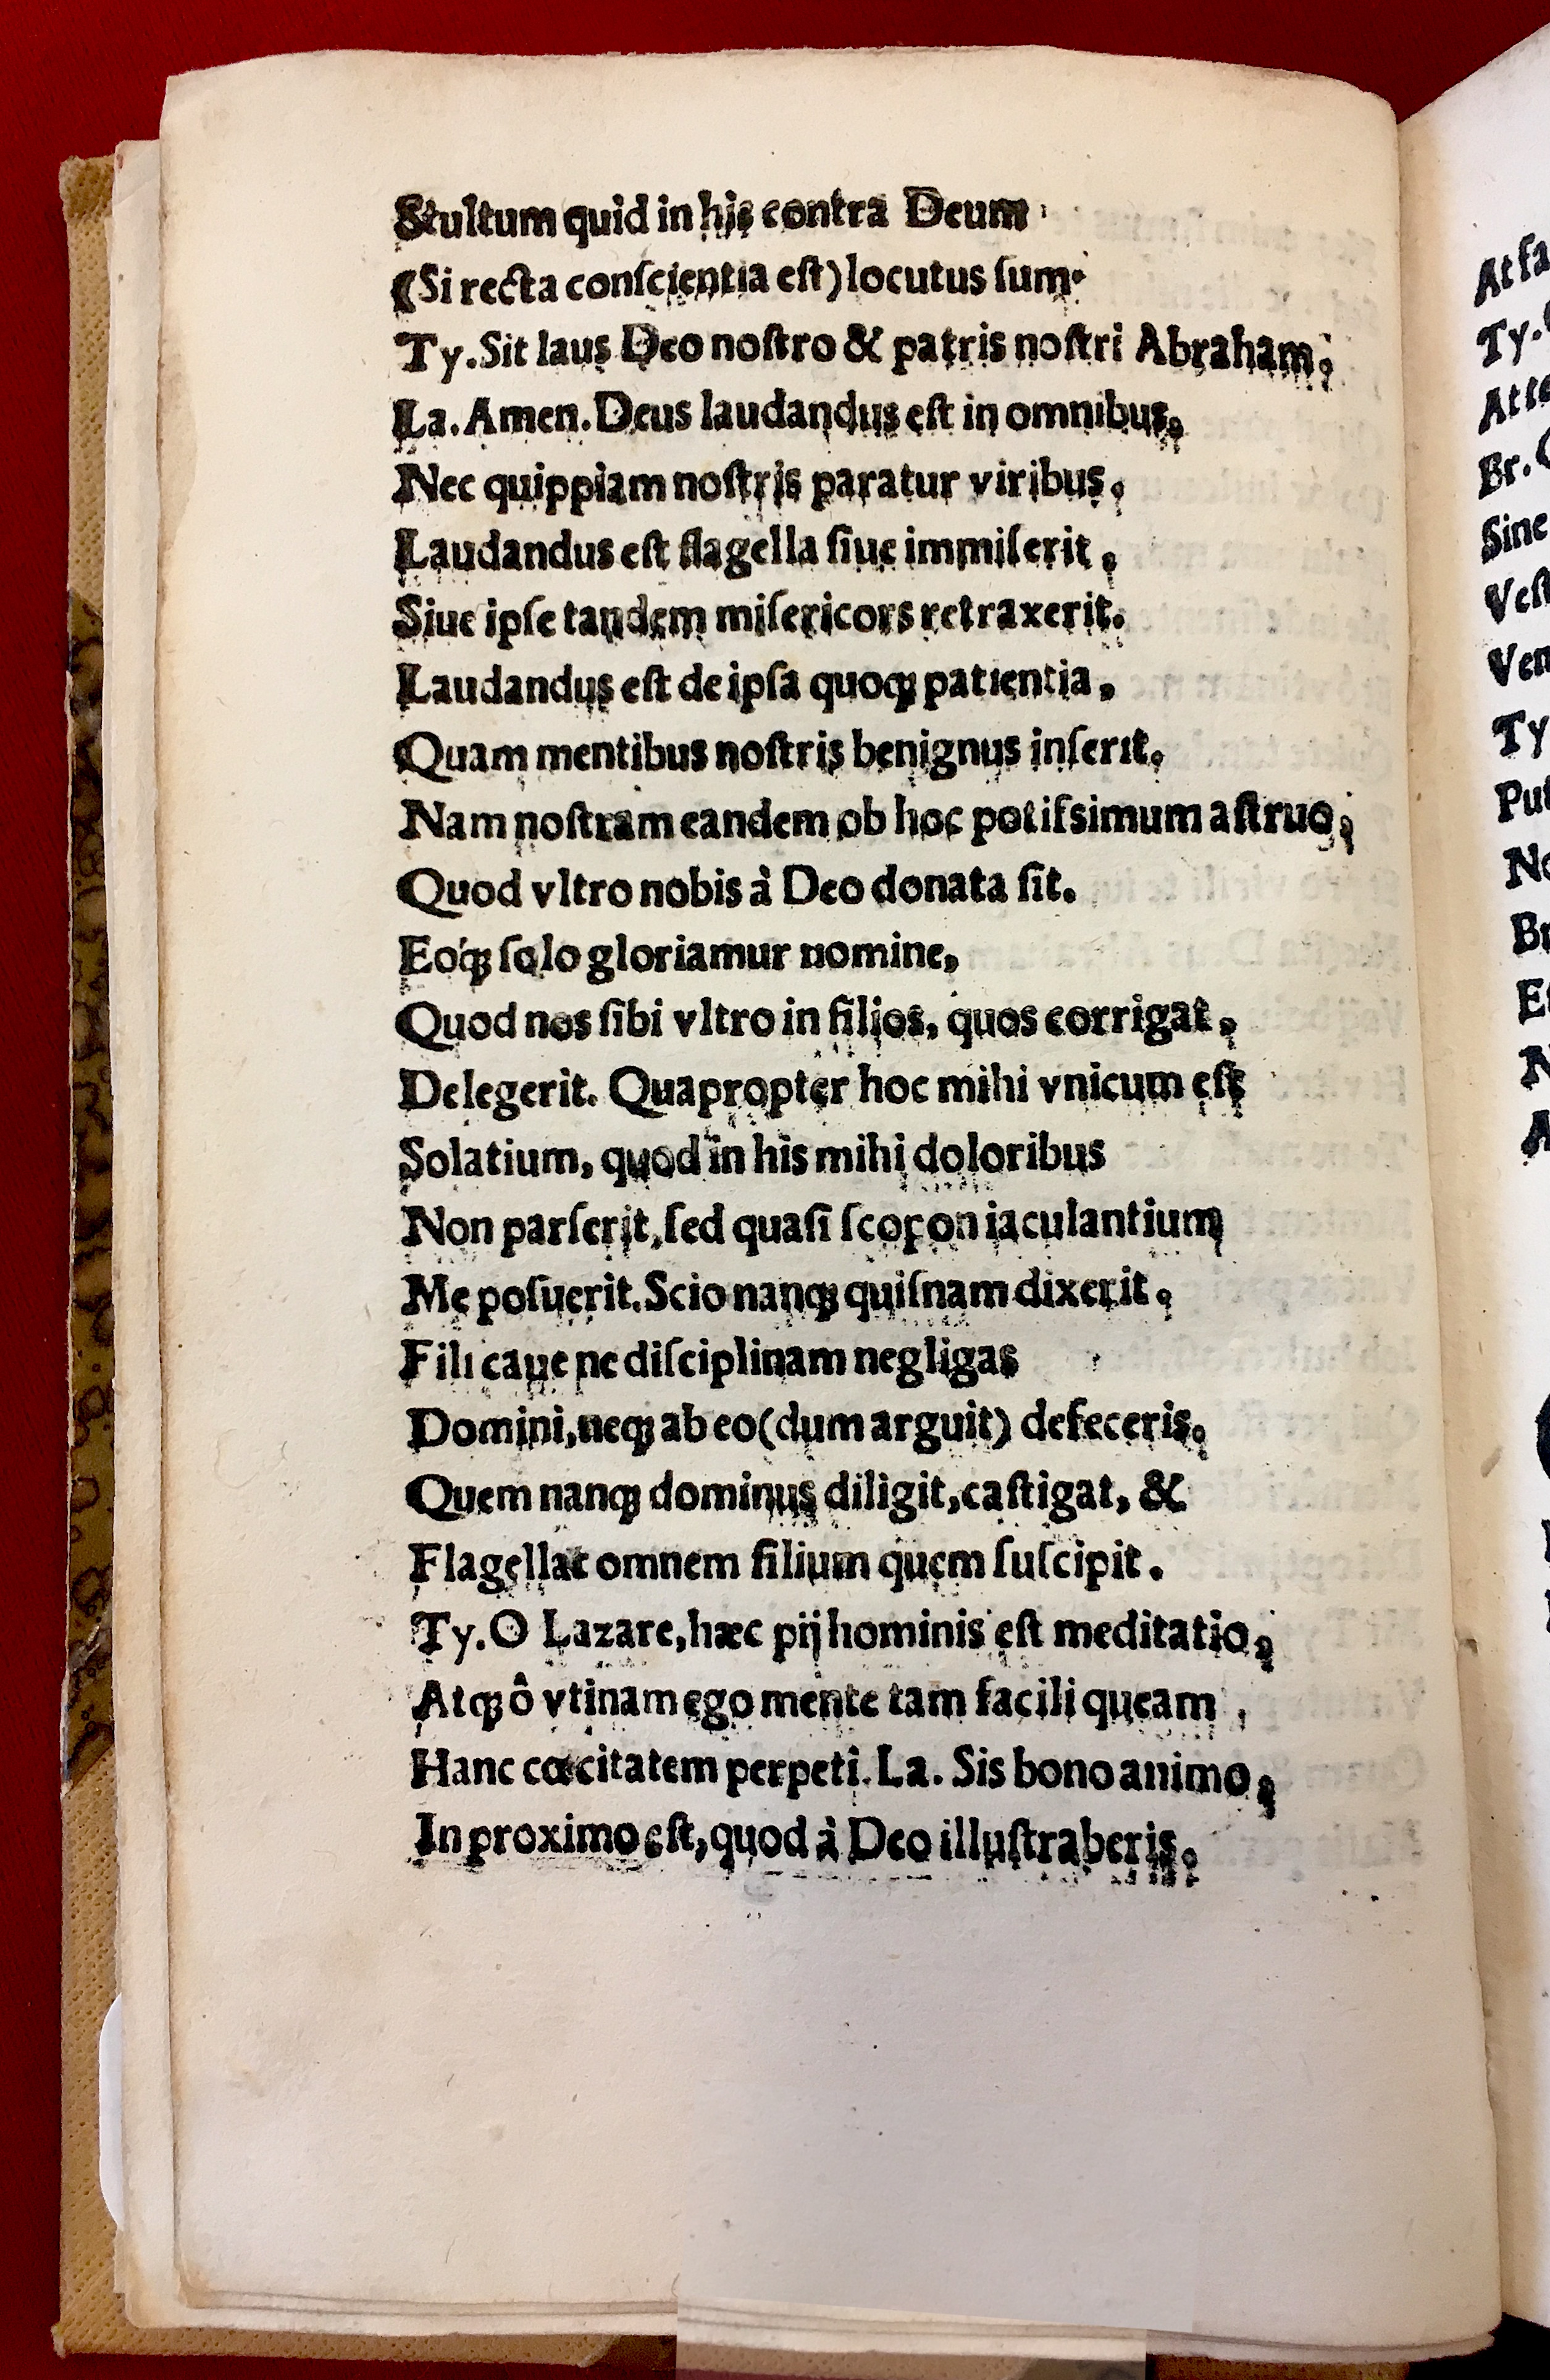 Stultum quid in his contra Deum
(Si recta conſcientia eſt) locutus ſum.
Ty. Sit laus Deo noſtro & patris noſtri Abraham.
La. Amen. Deus laudandus eſt in omnibus.
Nec quippiam noſtris paratur viribus.
Laudandus eſt flagella ſiue immiſerit,
Siue ipſe tandem miſericors retraxerit.
Laudandus eſt de ipſa quoqꝫ patientia,
Quam mentibus noſtris benignus inſerit.
Nam noſtram eandem ob hoc potiſsimum aſtruo,
Quod vltro nobis à Deo donata ſit.
Eóqꝫ ſolo gloriamur nomine,
Quod nos ſibi vltro in filios, quos corrigat,
Delegerit. Quapropter hoc mihi vnicum eſt
Solatium, quod in his mihi doloribus
Non parſerit, ſed quaſi ſcopon iaculantium
Me poſuerit. Scio nanqꝫ quiſnam dixerit.
Fili caue ne diſciplinam negligas
Domini, neqꝫ ab eo (dum arguit) defeceris.
Quem nanqꝫ dominus diligit, caſtigat, &
Flagellat omnem filium quem ſuſcipit.
Ty. O Lazare, hæc pij hominis eſt meditatio,
Atqꝫ ô vtinam ego mente tam facili queam
Hanc cœcitatem perpeti. La. Sis bono animo,
In proximo eſt, quod à Deo illuſtraberis.
At fa
Ty.
At
Br.
Sine
Veſt
Ven
Ty
Put
No
Br
Eſ
N
A